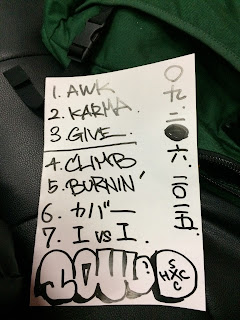 1. AWK
2. KARMA
3. GIVE
4. CLIMB
5. BURNIN'
6. カバー
7. I vs I
〇九.二●六.二〇二五
S
HXC
C